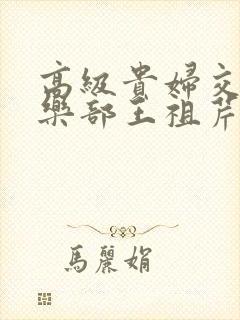 高級貴婦交
樂部王祖芹
馬麗娟